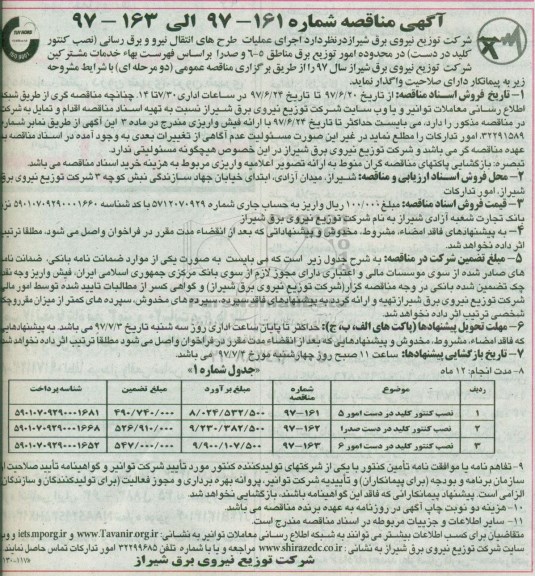 آگهی مناقصه شماره ۱۶۱-۹۷ الی ۱۶۳-۹۷
شرکت توزیع نیروی برق شیراز در نظر دارد اجرای عملیات طرح های انتقال نیرو و برق رسانی (نصب کنتور
کلید در دست) در محدوده امور توزیع برق مناطق ۵-۶ و صدرا براساس فهرست بهاء خدمات مشترکین
شرکت توزیع نیروی برق شیراز سال ۹۷ را از طریق برگزاری مناقصه عمومی (دو مرحله ای) با شرایط مشروحه
زیر به پیمانکار دارای صلاحیت واگذار نماید.
۱- تاریخ فروش اسناد مناقصه: از تاریخ ۹۷/۶/۲۰ تا تاریخ ۹۷/۶/۲۴ در ساعات اداری ۷/۳۰ تا ۱۴. چنانچه مناقصه گری از طریق شبکه
اطلاع رسانی معاملات توانیر و یا وب سایت شرکت توزیع نیروی برق شیراز نسبت به تهیه اسناد مناقصه اقدام و تمایل به شرکت
در مناقصه مذکور را دارد، می بایست حداکثر تا تاریخ ۹۷/۶/۲۴ با ارائه فیش واریزی مندرج در ماده ۳ این آگهی از طریق نمابر شماره
۳۲۲۹۱۵۸۹، امور تدارکات را مطلع نماید در غیر این صورت مسئولیت عدم آگاهی از تغییرات بعدی به وجود آمده در اسناد مناقصه به
عهده مناقصه گر می باشد و شرکت توزیع نیروی برق شیراز در این خصوص هیچگونه مسئولیتی ندارد.
تبصره: بازگشایی پاکتهای مناقصه گران منوط به ارائه تصویر اعلامیه واریزی مربوط به هزینه خرید اسناد مناقصه می باشد.
۲- محل فروش اسناد ارزیابی و مناقصه: شیراز، میدان آزادی، ابتدای خیابان جهاد سازندگی نبش کوچه ۳ شرکت توزیع نیروی برق
شیراز، امور تدارکات
۳- قیمت فروش اسناد مناقصه: مبلغ ۱۰۰/۰۰۰ ریال واریز به حساب جاری شماره ۵۷۱۲۰۷۰۹۲۹ با شناسه ۵۹۰۱۰۷۰۹۲۹۰۰۰۱۶۶۰ نزد
بانک تجارت شعبه آزادی شیراز به نام شرکت توزیع نیروی برق شیراز
۴- به پیشنهادهای فاقد امضاء، مشروط، مخدوش و پیشنهاداتی که بعد از انقضاء مدت مقرر در فراخوان واصل می شود، مطلقا ترتیب
اثر داده نخواهد شد.
۵- مبلغ تضمین شرکت در مناقصه: به شرح جدول زیر است که می بایست به صورت یکی از موارد ضمانت نامه بانکی، ضمانت نامه
های صادر شده از سوی موسسات مالی و اعتباری دارای مجوز لازم از سوی بانک مرکزی جمهوری اسلامی ایران، فیش واریز وجه نقد،
چک تضمین شده بانکی در وجه مناقصه گزار (شرکت توزیع نیروی برق شیراز) و گواهی کسر از مطالبات تایید شده توسط امور مالی
شرکت توزیع نیروی برق شیراز تهیه و ارائه گردید به پیشنهادهای فاقد سپرده، سپرده های مخدوش، سپرده های کمتر از میزان مقرر و چک
شخصی ترتیب اثر داده نخواهد شد.
۶- مهلت تحویل پیشنهادها (پاکت های الف، ب، ج): حداکثر تا پایان ساعت اداری روز سه شنبه تاریخ ۹۷/۷/۳ می باشد. به پیشنهادهایی
که فاقد امضاء، مشروط، مخدوش و پیشنهادهایی که بعد از انقضاء مدت مقرر در فراخوان واصل می شود مطلقا ترتیب اثر داده نخواهد شد.
۷- تاریخ بازگشایی پیشنهادها: ساعت ۱۱ صبح روز چهارشنبه مورخ ۹۷/۷/۴ می باشد.
۸- مدت انجام: ۱۲ ماه
«جدول شماره ۱»
ردیف موضوع شماره مناقصه مبلغ برآورد مبلغ تضمین شناسه پرداخت
۱ نصب کنتور کلید در دست امور ۵ ۹۷-۱۶۱ ۸/۰۲۴/۵۳۲/۵۰۰ ۴۹۰/۷۴۰/۰۰۰ ۵۹۰۱۰۷۰۹۲۹۰۰۰۱۶۸۱
۲ نصب کنتور کلید در دست صدرا ۹۷-۱۶۲ ۹/۲۳۰/۳۸۲/۵۰۰ ۵۲۶/۹۱۰/۰۰۰ ۵۹۰۱۰۷۰۹۲۹۰۰۰۱۶۶۸
۳ نصب کنتور کلید در دست امور ۶ ۹۷-۱۶۳ ۹/۹۰۰/۱۰۷/۵۰۰ ۵۴۷/۰۰۰/۰۰۰ ۵۹۰۱۰۷۰۹۲۹۰۰۰۱۶۵۲
۹- تفاهم نامه یا موافقت نامه تأمین کنتور با یکی از شرکتهای تولیدکننده کنتور مورد تأیید شرکت توانیر و گواهینامه تأیید صلاحیت از
سازمان برنامه و بودجه (برای پیمانکاران) و تأییدیه شرکت توانیر، پروانه بهره برداری و مجوز فعالیت (برای تولیدکنندگان و سازندگان)
الزامی است. پیشنهاد پیمانکارانی که فاقد این گواهینامه باشند، بازگشایی نخواهد شد.
۱۰- هزینه دو نوبت چاپ آگهی در روزنامه به عهده برنده مناقصه می باشد.
۱۱- سایر اطلاعات و جزییات مربوطه در اسناد مناقصه مندرج است.
متقاضیان برای کسب اطلاعات بیشتر می توانند به شبکه اطلاع رسانی معاملات توانیر به نشانی: www.Tavanir.org.ir و iets.mporg.ir و وب
سایت شرکت توزیع نیروی برق شیراز به نشانی: www.shirazedc.co.ir مراجعه و یا با شماره تلفن ۳۲۲۹۹۶۸۵ امور تدارکات تماس حاصل نمایند.
شرکت توزیع نیروی برق شیراز